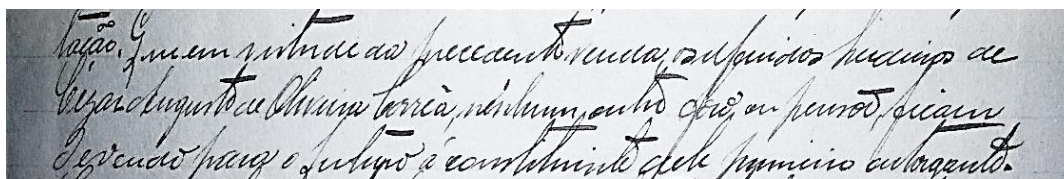 tação. Que em virtude da precedente venda, os referidos herdeiros de
Cezar Augusto de Oliveira Corrêa, nenhum outro fôro, ou pensão, ficam
devendo para o futuro á constituinte dele primeiro outorgante.